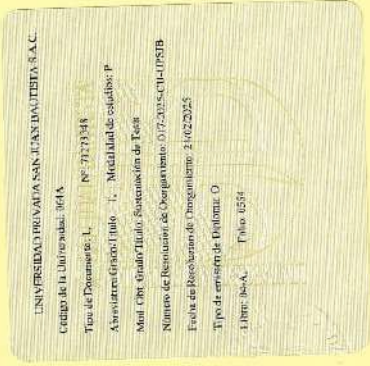 UNIVERSIDAD PRIVADA SAN JUAN BAUTISTA S.A.C.
Código de la Universidad: 064A
Tipo de Documento: 1, Nº: 71273348
Abreviatura Grado/Título: T, Modalidad de estudios: P
Mod. Obt. Grado/Título: Sustentación de Tesis
Número de Resolución de Otorgamiento: 017-2025-CU-UPSJB
Fecha de Resolución de Otorgamiento: 21/02/2025
Tipo de emisión de Diploma: O
Libro: 04-A, Folio: 0554